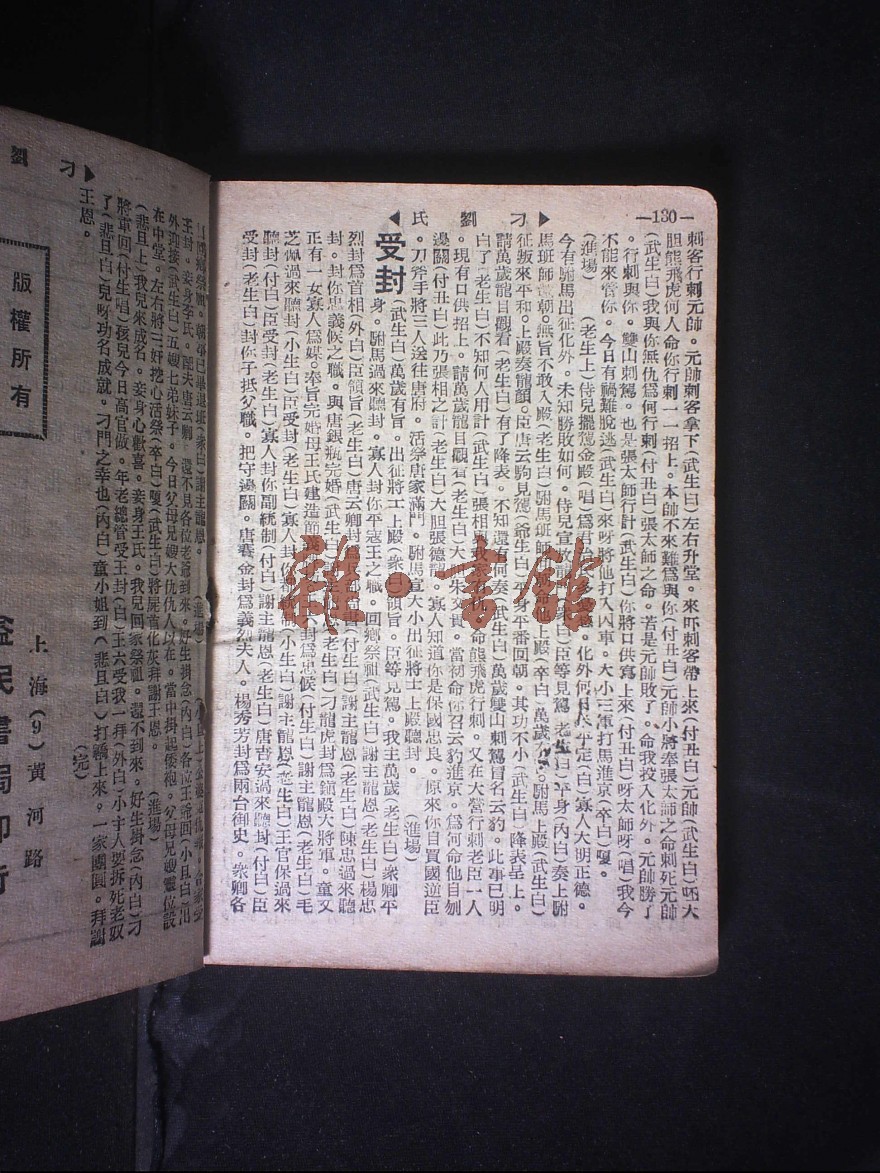 —130—
◀氏 劉 刁▶
刺客行刺元帥。元帥刺客拿下(武生白)左右升堂。來吓刺客帶上來(付丑白)元帥(武生白)呸大
胆熊飛虎何人命你行刺一一招上。本帥不來難爲與你(付丑白)元帥小將奉張太師之命刺死元帥
(武生白)我與你無仇爲何行刺(付丑白)張太師之命。若是元帥敗了。命我投入化外。元帥勝了
。行刺與你。雙山刺駕。也是張太師行計(武生白)你將口供寫上來(付丑白)呀太師呀(唱)我今
不能來管你。今日有禍難脫逃(武生白)來呀將他打入囚車。大小三軍打馬進京(卒白)嗄。
(進場) (老生上)侍兒擺駕金殿(唱)爲君 化外何日 平定(白)寡人大明正德。
今有駙馬出征化外。未知勝敗如何。侍兒宣 臣等見駕 老生白)平身(內白)奏上駙
馬班師還朝。無旨不敢入殿(老生白)駙馬班師 他上殿(卒白)萬歲 。駙馬上殿(武生白)
征叛來平和。上殿奏龍顏。臣唐云駒見駕(爺生白) 身平番回朝。其功不小(武生白)降表呈上。
請萬歲龍目觀看(老生白)有了降表。不知還有何奏(武生白)萬歲雙山刺駕冒名云豹。此事已明
白了(老生白)不知何人用計(武生白)張相 命熊飛虎行刺。又在大營行刺老臣一人
。現有口供招上。請萬歲龍目觀看(老生白)大 朱文貴。當初命你召云豹進京。爲何命他自刎
邊關(付丑白)此乃張相之計(老生白)大胆張德龍。寡人知道你是保國忠良。原來你自買國逆臣
。刀斧手將三人送往唐府。活祭唐家滿門。駙馬宣大小出征將士上殿聽封。 (進場)
受封 (武生白)萬歲有旨。出征將士上殿(衆白)領旨。臣等見駕。我主萬歲(老生白)衆卿平
身。駙馬過來聽封。寡人封你平寇王之職。回鄉祭祖(武生白)謝主龍恩(老生白)楊忠
烈封爲首相(外白)臣領旨(老生白)唐云卿封爲 (付生白)謝主龍恩(老生白)陳忠過來聽
封。封你忠義候之職。與唐銀瓶完婚(武生白) 老生白)刁龍虎封爲鎮殿大將軍。童文
正有一女寡人爲媒。奉旨完婚母王氏建造節義 封爲忠候(付生白)謝主龍恩(老生白)毛
芝佩過來聽封(小生白)臣受封(老生白)寡人封你都統制(小生白)謝主龍恩(老生白)王官保過來
聽封(付白)臣受封(老生白)寡人封你副統制(付白)謝主龍恩(老生白)唐吉安過來聽封(付白)臣
受封(老生白)封你子抵父職。把守邊關。唐賽金封爲義烈夫人。楊秀芳封爲兩台御史。衆卿各
劉 刁▶
祭祖。朝事已畢退班(衆白)謝主龍恩。 (進場)
王封。妾身李氏。匹夫唐云卿。還不見各位老爺到來。好生掛念(內白)各位王爺回(小旦白)出
外迎接(武生白)五嫂七弟妹子。今日父母兄嫂大仇仇人以在。當中掛起倭袍。父母兄嫂靈位設
在中堂。左右將三奸挖心活祭(卒白)嗄(武生白)將屍首化灰拜謝王恩。 (進場)
(悲旦上)我兒來成名。妾身心歡喜。妾身王氏。我兒回家祭祖。還不到來。好生掛念(內白)刁
將軍回(付生唱)孩兒今日高官做。年老總管受王封(白)王六受我一拜(外白)小主人要拆死老奴
了(悲旦白)兒呀功名成就。刁門之幸也(內白)童小姐到(悲旦白)打轎上來。一家團圓。拜謝
王恩。 (完)
版權所有
上海(9)黃河路
益民書局印行
雜·書館